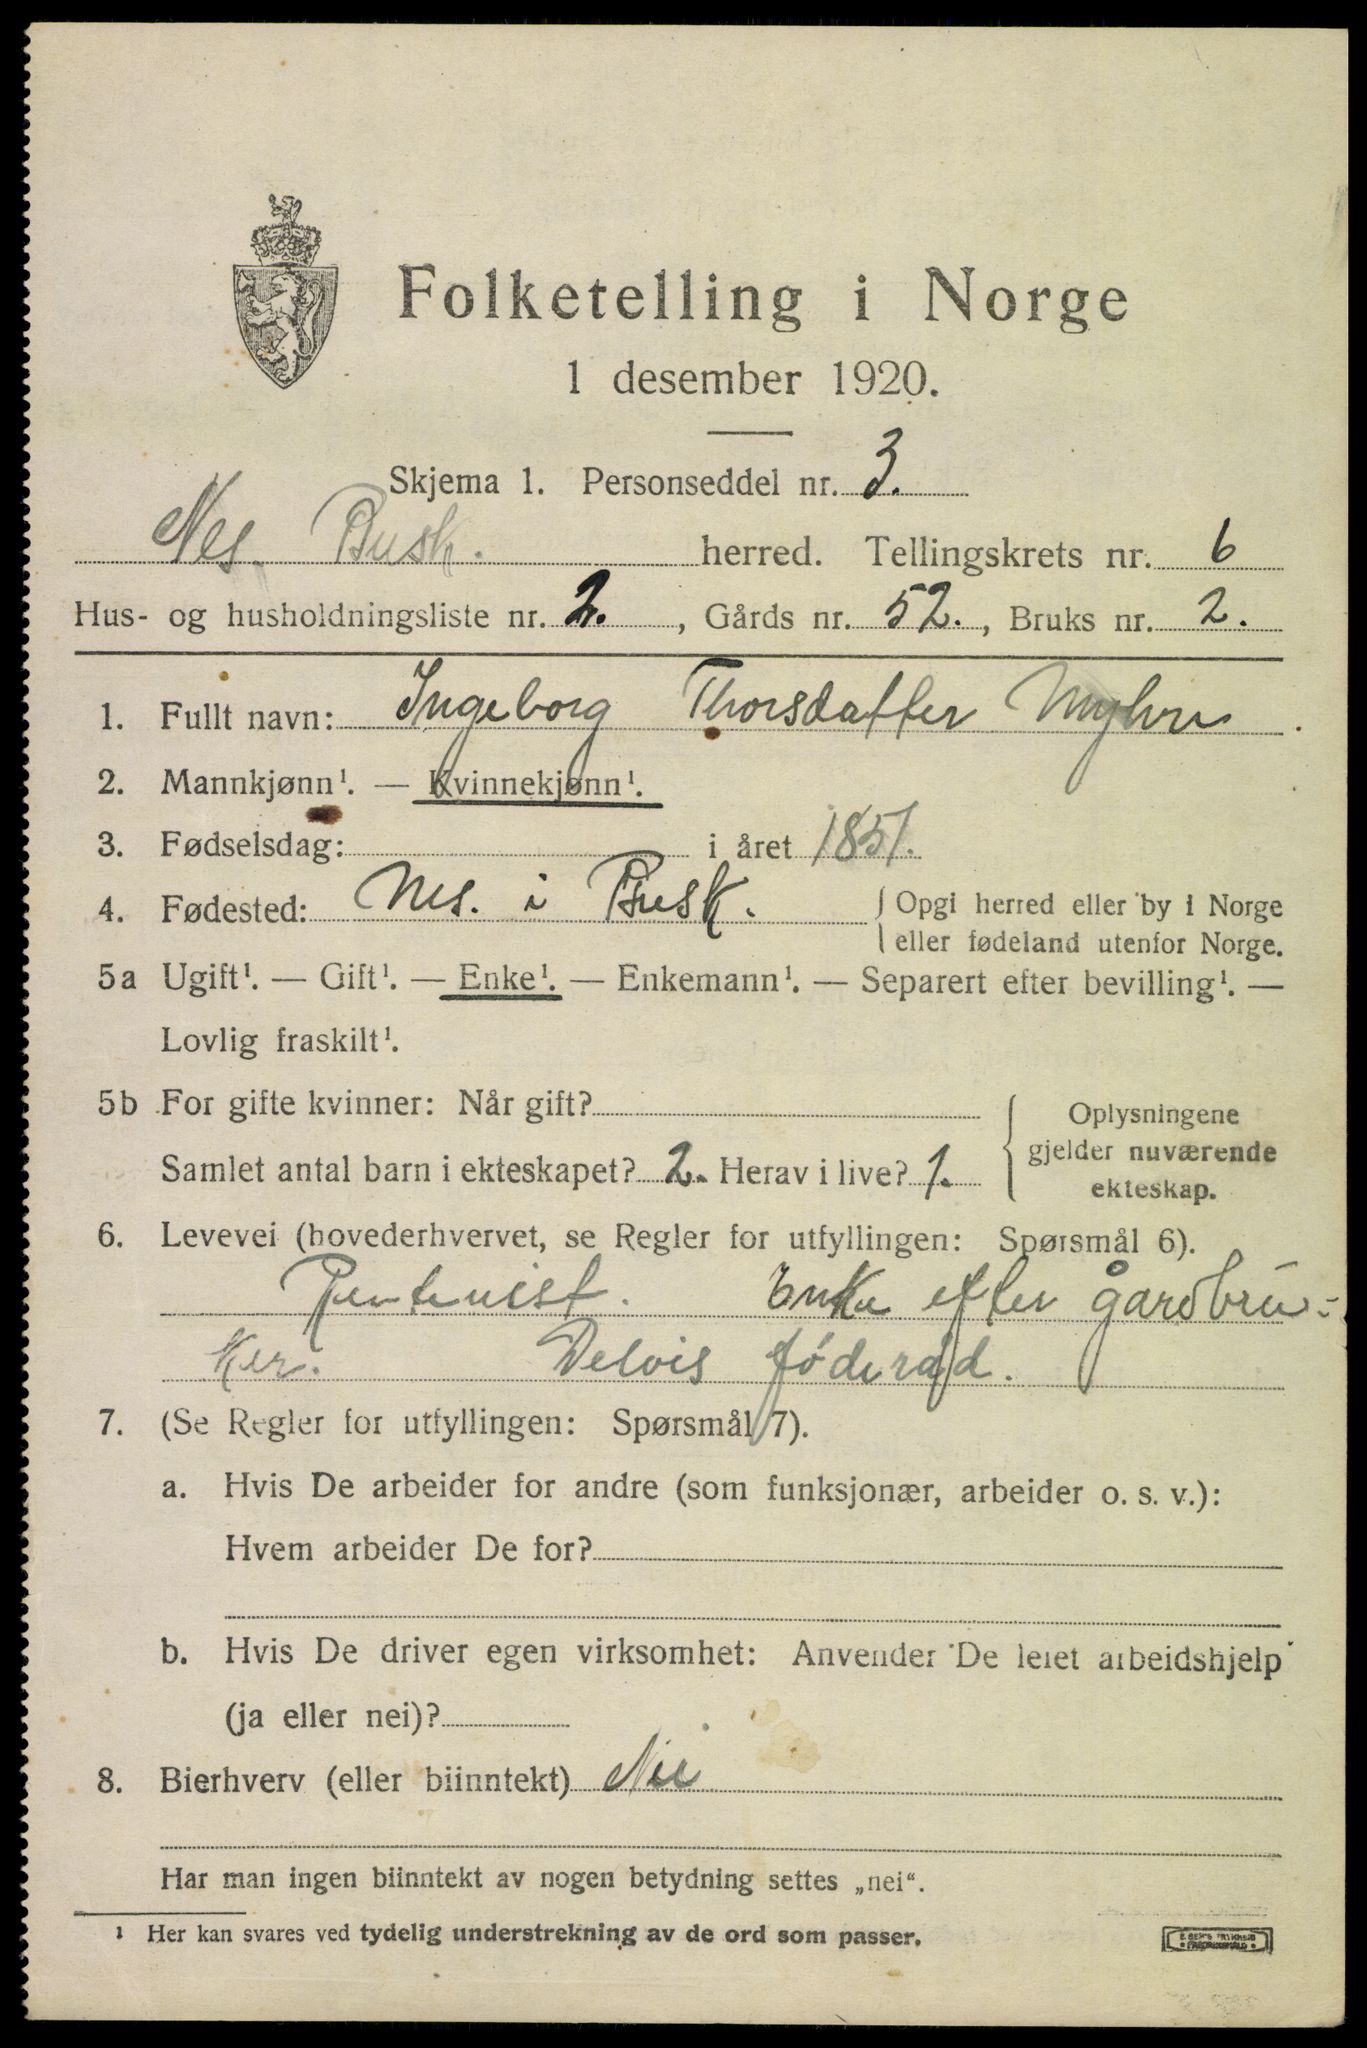 Folketelling i Norge
1 desember 1920.
Skjema 1. Personseddel nr. 3.
Nes Busk. herred. Tellingskrets nr. 6
Hus- og husholdningsliste nr. 2. , Gårds nr. 52. , Bruks nr. 2.
1. Fullt navn: Ingeborg Thorsdatter Myhre
2. Mannkjønn¹. — Kvinnekjønn¹.
3. Fødselsdag: i året 1851.
4. Fødested: Nes. i Busk. { Opgi herred eller by i Norge
eller fødeland utenfor Norge.
5a Ugift¹. — Gift¹. — Enke¹. — Enkemann¹. — Separert efter bevilling¹. —
Lovlig fraskilt¹.
5b For gifte kvinner: Når gift?
Samlet antal barn i ekteskapet? 2. Herav i live? 1.
Oplysningene
gjelder nuværende
ekteskap.
6. Levevei (hovederhvervet, se Regler for utfyllingen: Spørsmål 6).
Rentenist. Enke efter gårdbru-
ker. Delvis føderåd.
7. (Se Regler for utfyllingen: Spørsmål 7).
a. Hvis De arbeider for andre (som funksjonær, arbeider o. s. v.):
Hvem arbeider De for?
b. Hvis De driver egen virksomhet: Anvender De leiet arbeidshjelp
(ja eller nei)?
8. Bierhverv (eller biinntekt) Nei
Har man ingen biinntekt av nogen betydning settes „nei“.
¹ Her kan svares ved tydelig understrekning av de ord som passer.